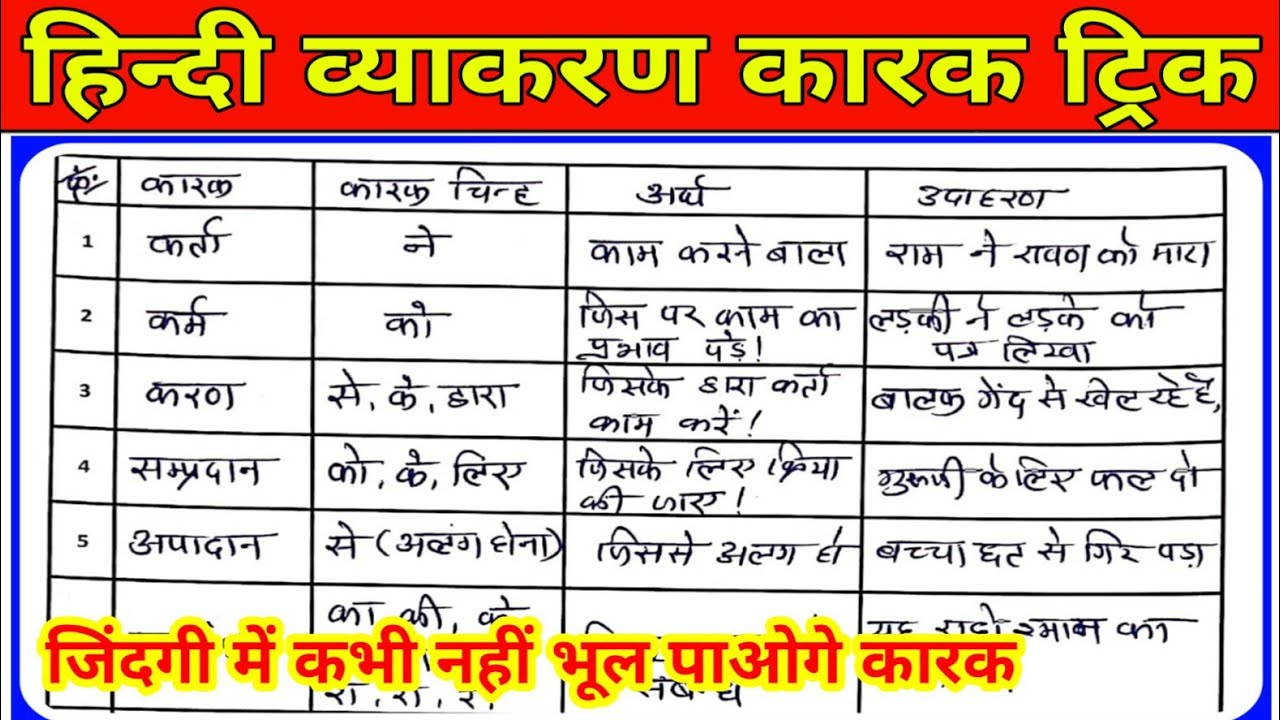 हिन्दी व्याकरण कारक ट्रिक
क्र: कारक कारक चिन्ह अर्थ उदाहरण
1 कर्ता ने काम करने बाला राम ने रावण को मारा
2 कर्म को जिस पर काम का लड़की ने लड़के को
प्रभाव पड़े! पत्र लिखा
3 करण से, के, द्वारा जिसके द्वारा कर्ता बालक गेंद से खेल रहे है,
काम करें!
4 सम्प्रदान को, के, लिए जिसके लिए क्रिया गुरुजी के लिए फल दो
की जाए!
5 अपादान से (अलंग होना) जिससे अलग हो बच्चा छत से गिर पड़ा
का, की, के का
जिंदगी में कभी नहीं भूल पाओगे कारक